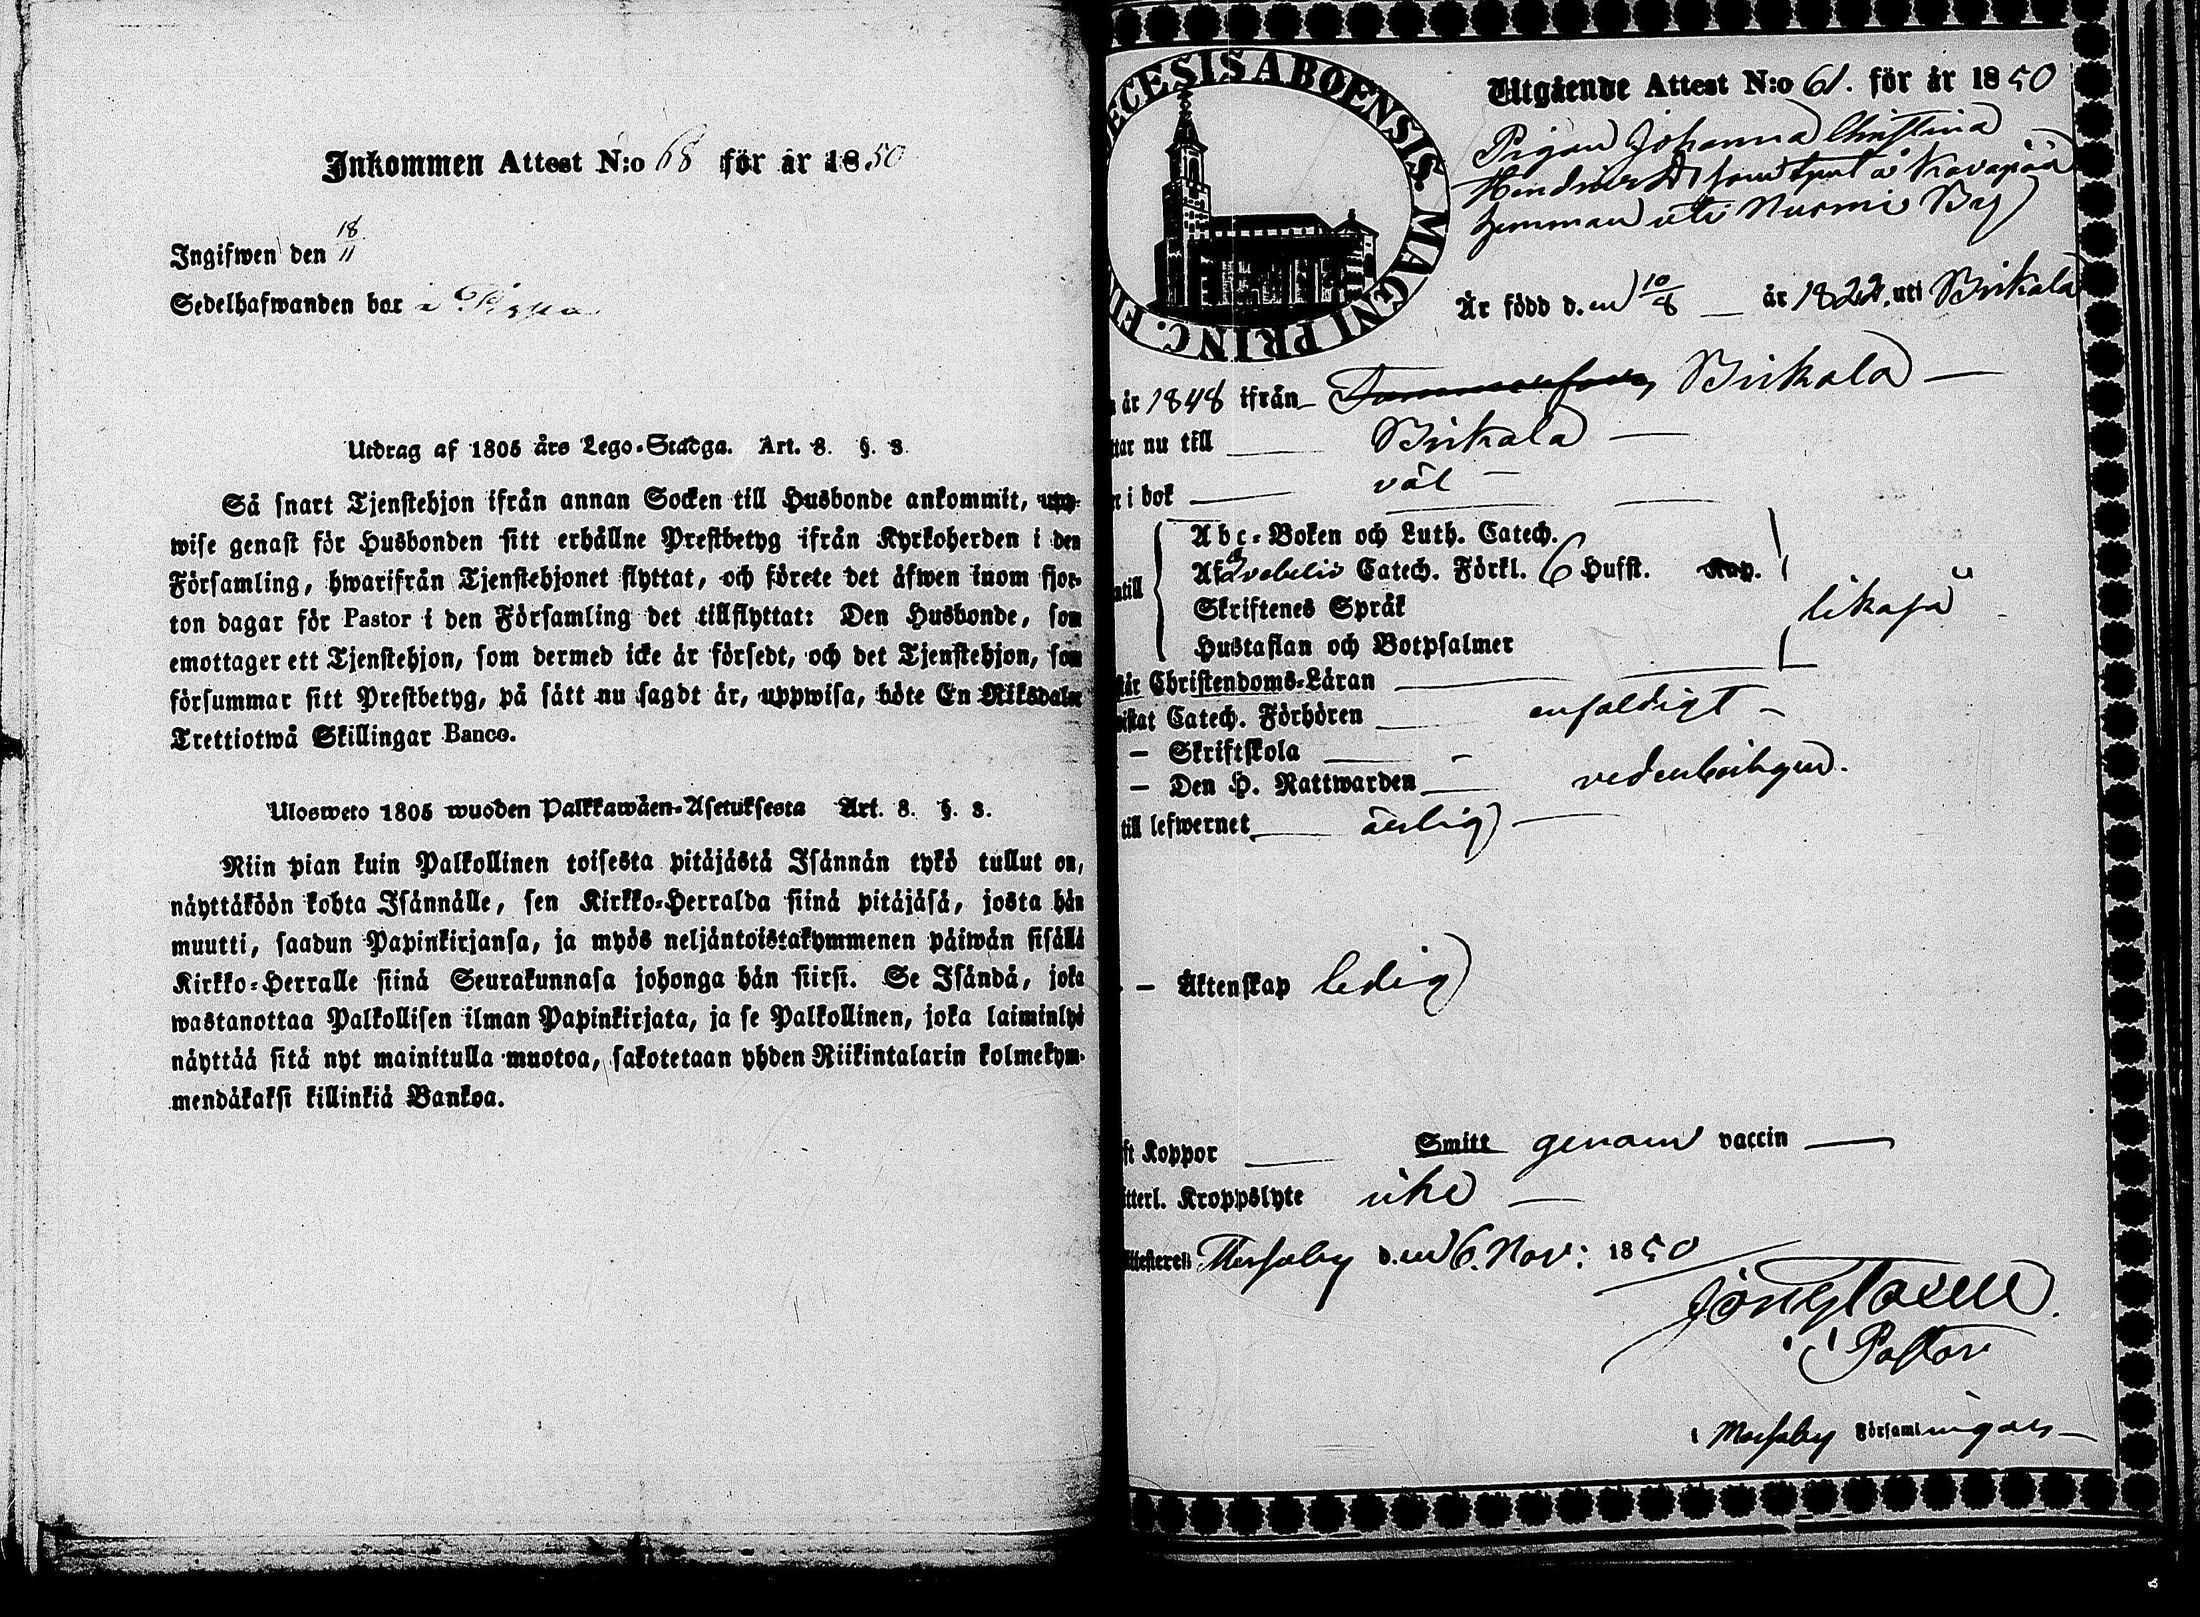 Inkommen Attest N:o 68 för år 1850
Ingifwen den 18/11
Sedelhafwanden bor i
Utdrag af 1805 års Lego-Stadga. Art. 8. §. 3.
Så snart Tjenstehjon ifrån annan Socken till Husbonde ankommit, upp-
wise genast för Husbonden sitt erhållne Prestbetyg ifrån Kyrkoherden i den
Församling, hwarifrån Tjenstehjonet flyttat, och förete det äfwen inom fjor-
ton dagar för Pastor i den Församling det tillflyttat: Den Husbonde, som
emottager ett Tjenstehjon, som dermed icke är försedt, och det Tjenstehjon, som
försummar sitt Prestbetyg, på sätt nu sagdt är, uppwisa, böte En Riksdaler
Trettiotwå Skillingar Banco.
Ulosweto 1805 wuoden Palkkawäen-Asetuksesta Art. 8. §. 3.
Niin pian kuin Palkollinen toisesta pitäjästä Isännän tykö tullut on,
näyttäköön kohta Isännälle, sen Kirkko-Herralda siinä pitäjäsä, josta hän
muutti, saadun Papinkirjansa, ja myös neljäntoistakymmenen päiwän sisällä
Kirkko-Herralle siinä Seurakunnasa johonga hän siirsi. Se Isändä, joka
wastanottaa Palkollisen ilman Papinkirjata, ja se Palkollinen, joka laiminlyö
näyttää sitä nyt mainitulla muotoa, sakotetaan yhden Riikintalarin kolmekym-
mendäkaksi killinkiä Bankoa.
ECESIS ABOENSIS. MAGNI PRINC. FI
Utgående Attest N:o 61. för år 1850
Pigan Johanna Christina
Hendriksd. som tjent å Kavapää
hemman uti Nurmi By
Är född d.en 10/8 år 1822, uti Birkala
år 1848 ifrån Birkala
ttar nu till Birkala
r i bok väl
Abc-Boken och Luth. Catech.
Af Svebelii Catech. Förkl. 6 Hufst. Kap.
ntill Skriftenes Språk likaså
Hustaflan och Botpsalmer
står Christendoms-Läran
wistat Catech. Förhören enfaldigt
— Skriftskola -
— Den H. Nattwarden vederbörligen.
till lefwernet ärlig
— Äktenskap ledig
ft Koppor Smitt genom vaccin
tterl. Kroppslyte icke
Attesteras Messuby d.en 6. Nov: 1850
Pastor
i Messuby Församlingar